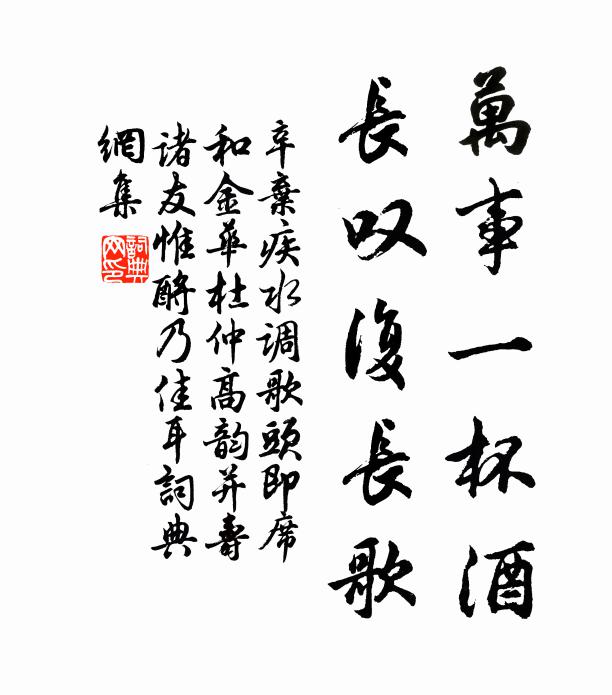 萬事一杯酒
長叹復長歌
辛棄疾水调歌頭即席
和金華杜仲高韵并壽
诸友惟酹乃佳耳詞典
網集
詞典
网印